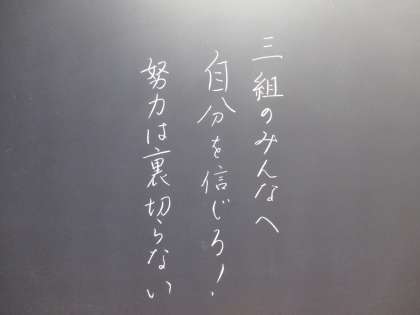 三組のみんなへ
自分を信じろ!
努力は裏切らない